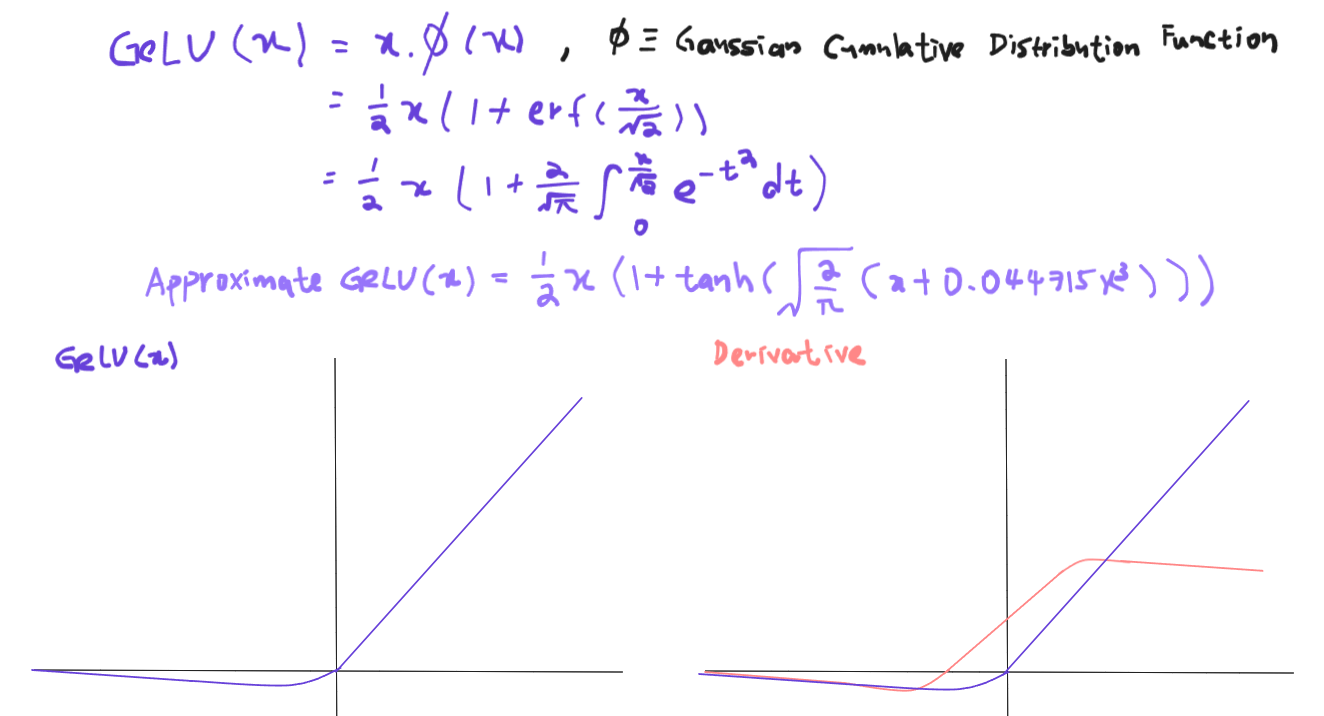 GeLU(x) = x.ϕ(x) , ϕ ≡ Gaussian Cumulative Distribution Function
= 1/2 x(1+erf(x/√2))
= 1/2 x(1+2/√π ∫₀^(x/√2) e^(-t²) dt)
Approximate GeLU(x) = 1/2 x(1+tanh(√(2/π)(x+0.044715x³)))
GeLU(x)
Derivative